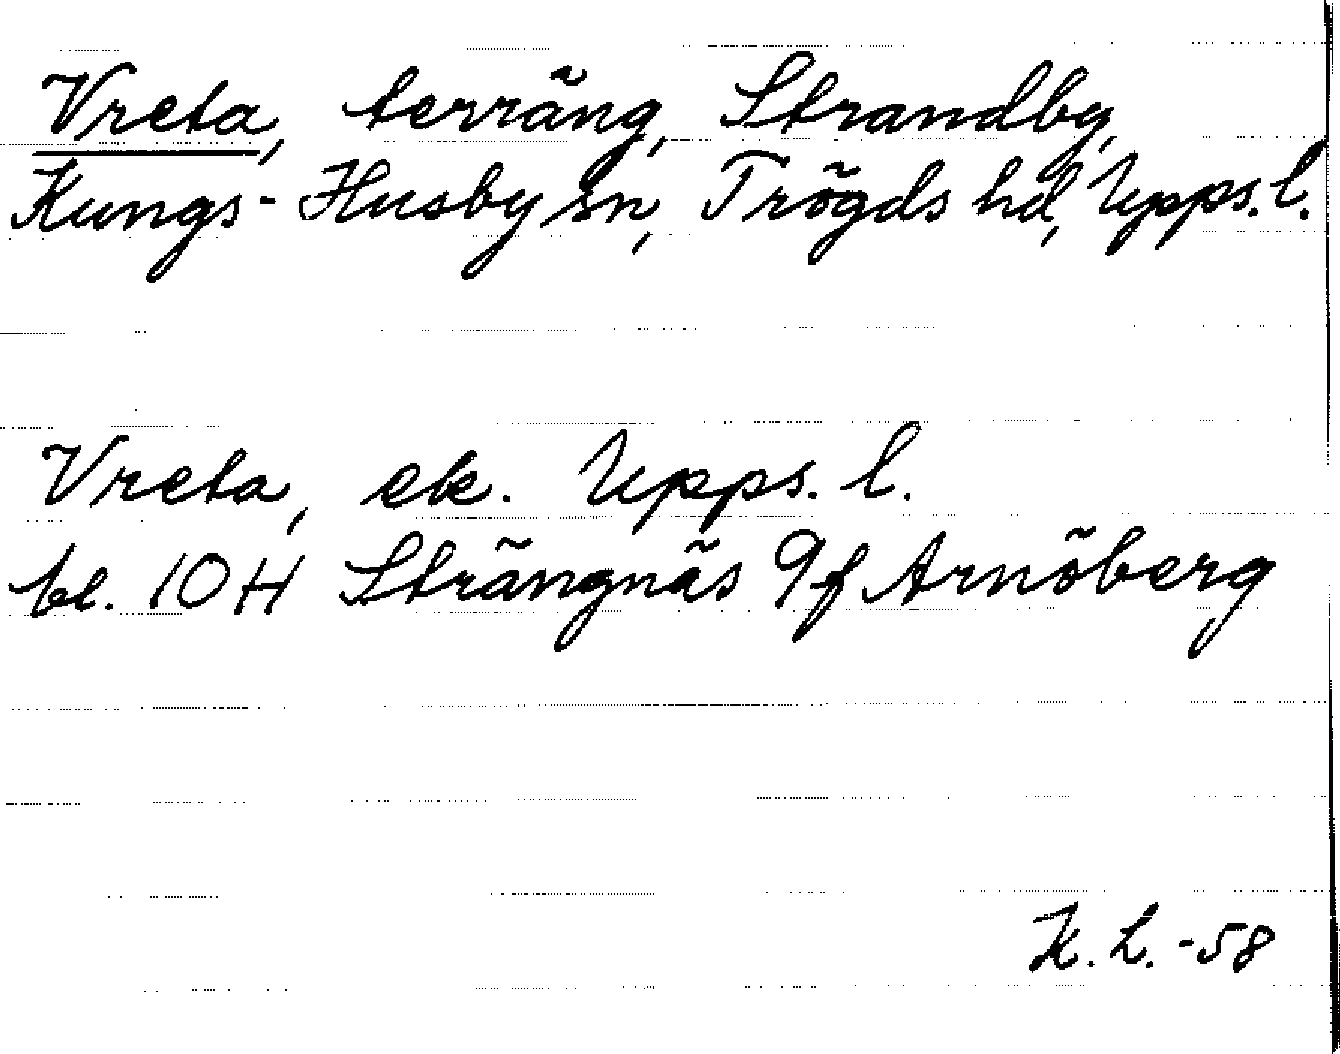 Vreta, terräng, Strandby,
Kungs-Husby sn, Trögds hd, Upps. l.
Vreta, ek. Upps. l.
bl. 10 H Strängnäs 9f Arnöberg
K. L. -58